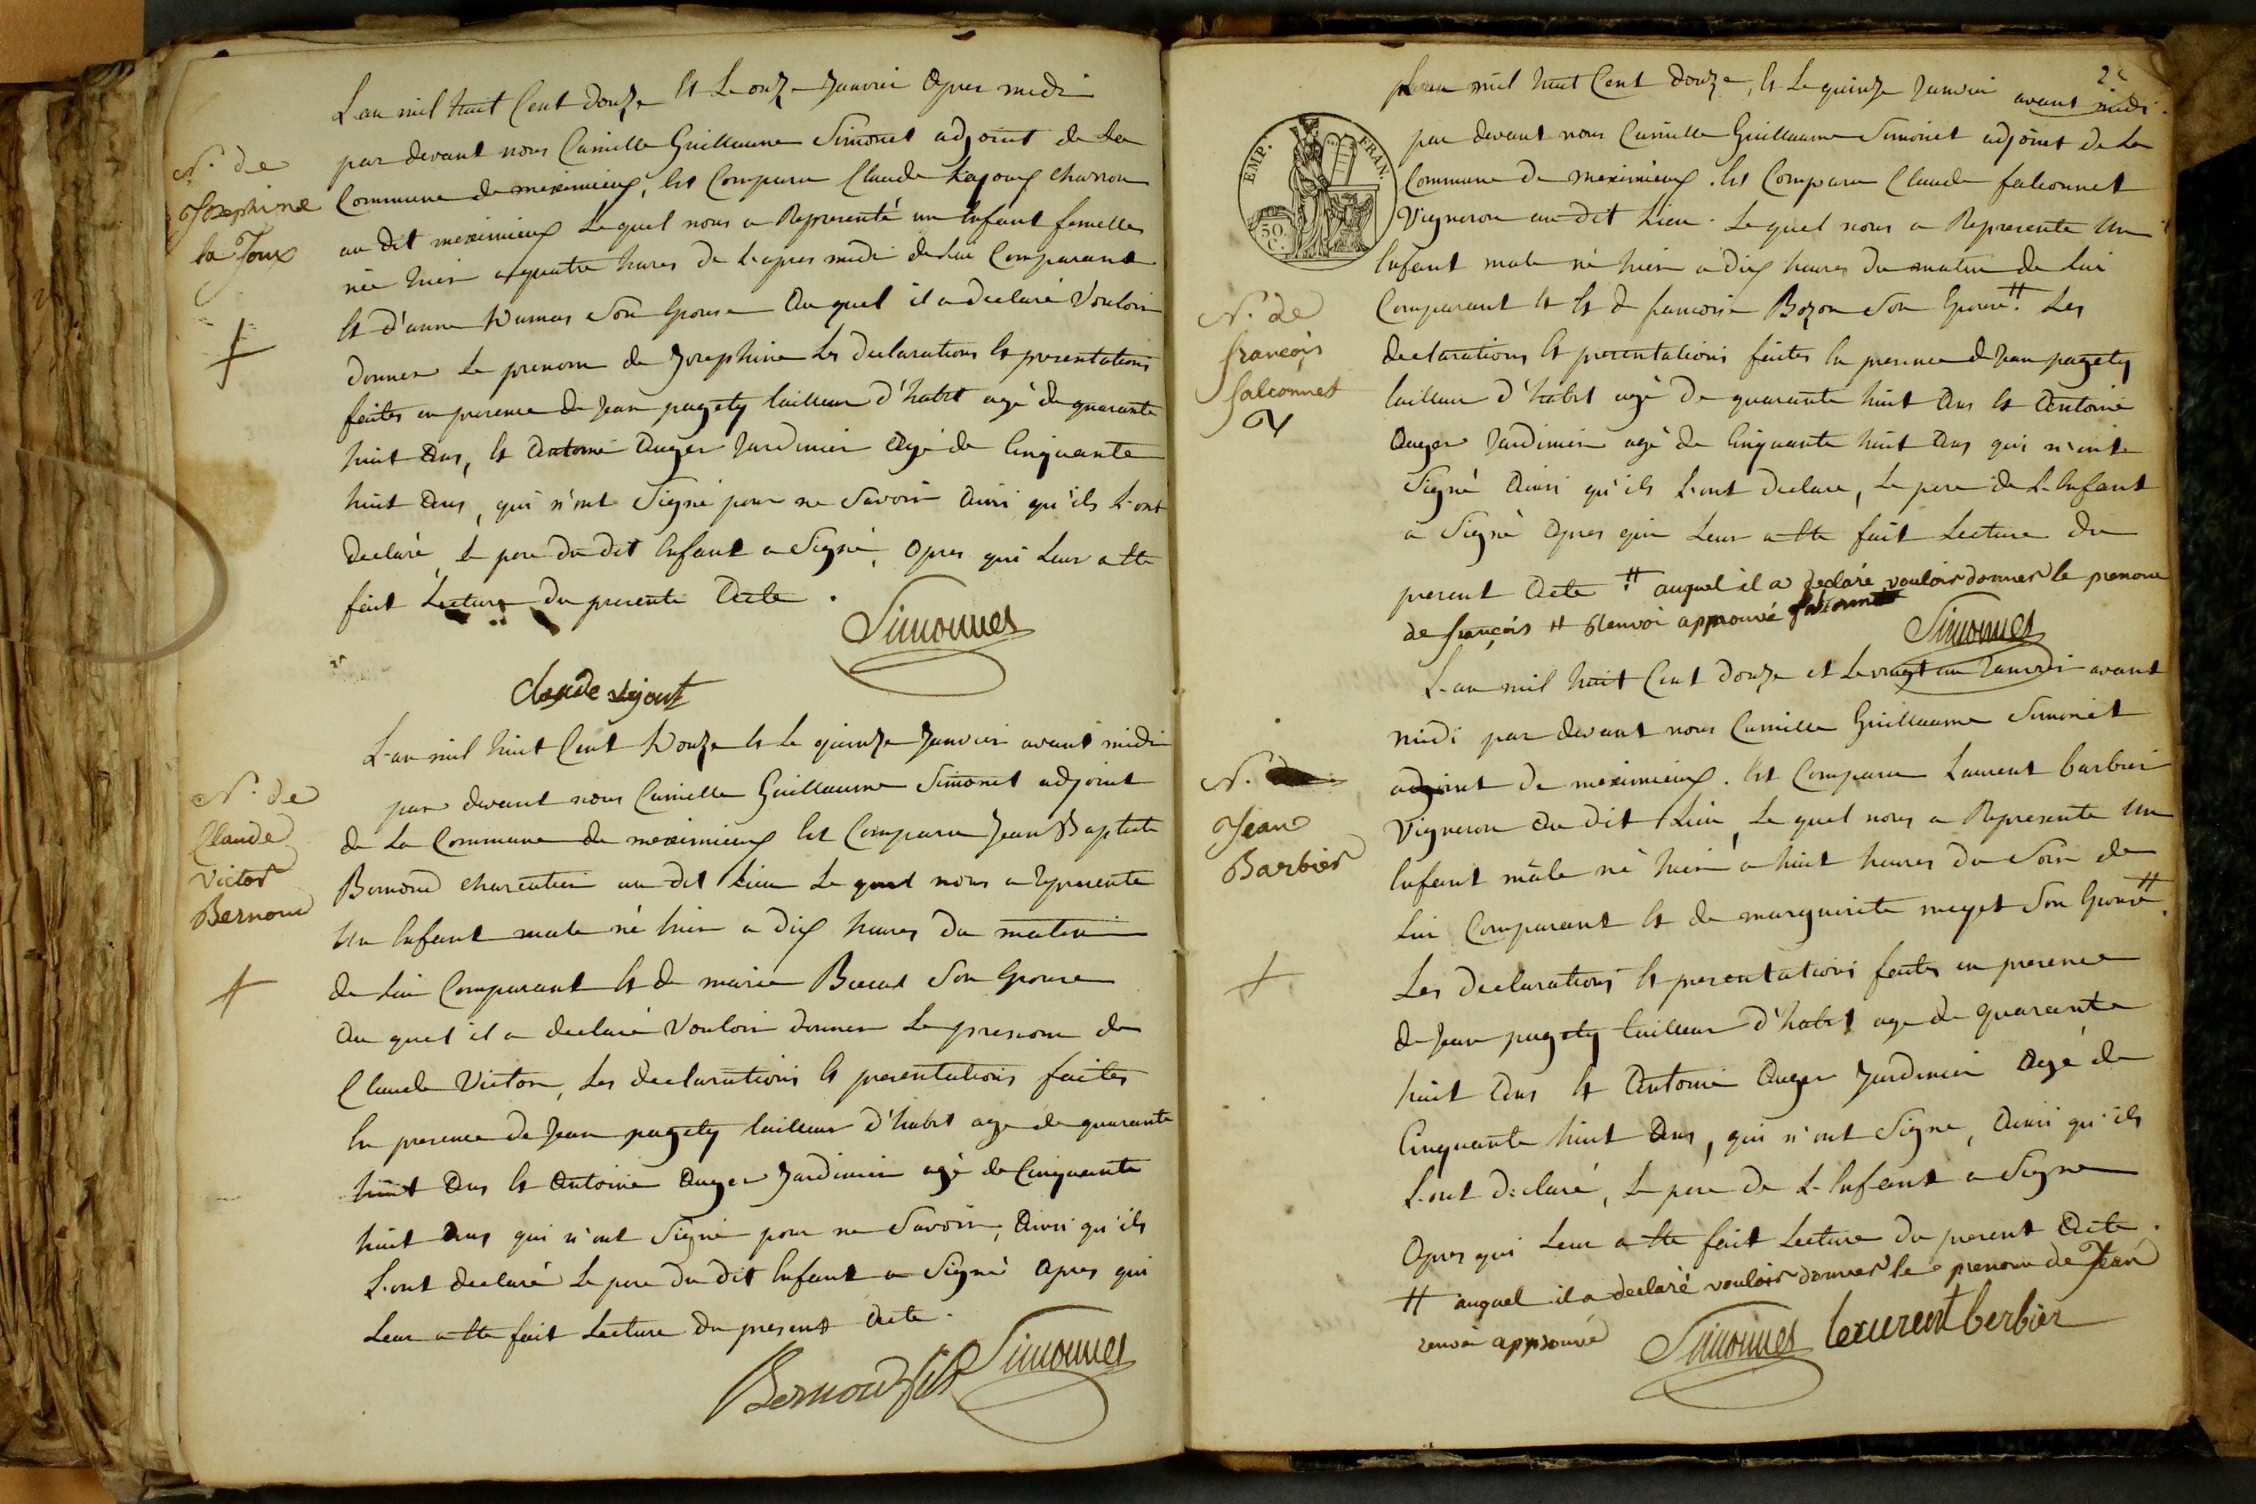 L'an mil huit Cent douze Et Le onze Janvier apres midi
par devant nous Camille Guillaume Simonet adjoint de La
Commune de meximieux, Est Comparu Claude Lajoux charron
au dit meximieux Lequel nous a Representé un Enfant femelle
née hier a quatre heures de L'apres midi de Lui Comparant
Et d'anne Dumas Son Epouse Au quel il a declaré Vouloir
donner Le prenom de Josephine Les declarations Et presentations
faites en presence de Jean pagety tailleur d'habit agé de quarante
huit Ans, Et Antoine Auger Jardinier Agé de Cinquante
huit Ans, qui n'ont Signé pour ne Savoir Ainsi qu'ils L'ont
declaré, Le pere du dit Enfant a Signé, Apres qui Leur a Ete
fait Lecture du presente Acte.
Simonnet
claude lajout
N. de
Josephine
la Joux
L'an mil huit Cent Douze Et Le quinze Janvier avant midi
par devant nous Camille Guillaume Simonet adjoint
de La Commune de meximieux Est Comparu Jean Baptiste
Bernoud charpentier au dit Lieu Le quel nous a representé
Un Enfant male né hier a dix heures du matin
de Lui Comparant Et de marie Son Epouse
Au quel il a declaré Vouloir donner Le prenom de
Claude Victor, Les declarations Et presentations faites
En presence de Jean pagety tailleur d'habit age de quarante
huit Ans Et Antoine Auger Jardinier agé de Cinquante
huit Ans qui n'ont Signé pour ne Savoir, Ainsi qu'ils
L'ont declaré Le pere du dit Enfant a Signé Apres qui
Leur a Ete fait Lecture du present Acte.
Bernoud fils Simonnet
N. de
Claude
Victor
Bernoud
mil huit Cent douze, Et Le quinze Janvier avant midi.
par devant nous Camille Guillaume Simonet adjoint de La
Commune de meximieux. Est Comparu Claude falconnet
Vigneron au dit Lieu. Le quel nous a Representé Un
Enfant male né hier a dix heures du matin de Lui
Comparant Et de francoise Bozon Son Epouse # Les
declarations Et presentations faites En presence de Jean pagety
tailleur d'habit agé de quarante huit Ans Et Antoine
Auger Jardinier agé de Cinquante huit Ans qui n'ont
Signé Ainsi qu'ils L'ont declare, Le pere de L'Enfant
a Signé Apres qui Leur a Ete fait Lecture du
present Acte # auquel il a declaré vouloir donner le prenom
de françois # Renvoi approuvé falconnet
Simonnet
EMP. FRAN.
50 C.
N. de
françois
falconnet
L'an mil huit Cent Douze et Le vingt un Janvier avant
midi par devant nous Camille Guillaume Simonet
adjoint de meximieux. Est Comparu Laurent barbier
Vigneron Au dit Lieu, Le quel nous a Representé Un
Enfant mâle né hier a huit heures du Soir de
Lui Comparant Et de marguerite Son Epouse #.
Les declarations Et presentations faites en presence
de Jean pagety tailleur d'habit age de quarante
huit Ans Et Antoine Auger Jardinier Agé de
Cinquante huit Ans, qui n'ont Signé, Ainsi qu'ils
L'ont declaré, Le pere de L'Enfant a Signe
Apres qui Leur a Ete fait Lecture du present Acte.
# auquel il a declaré vouloir donner le prenom de Jean
renvoi approuvé Simonnet laurent berbier
N.
Jean
Barbier